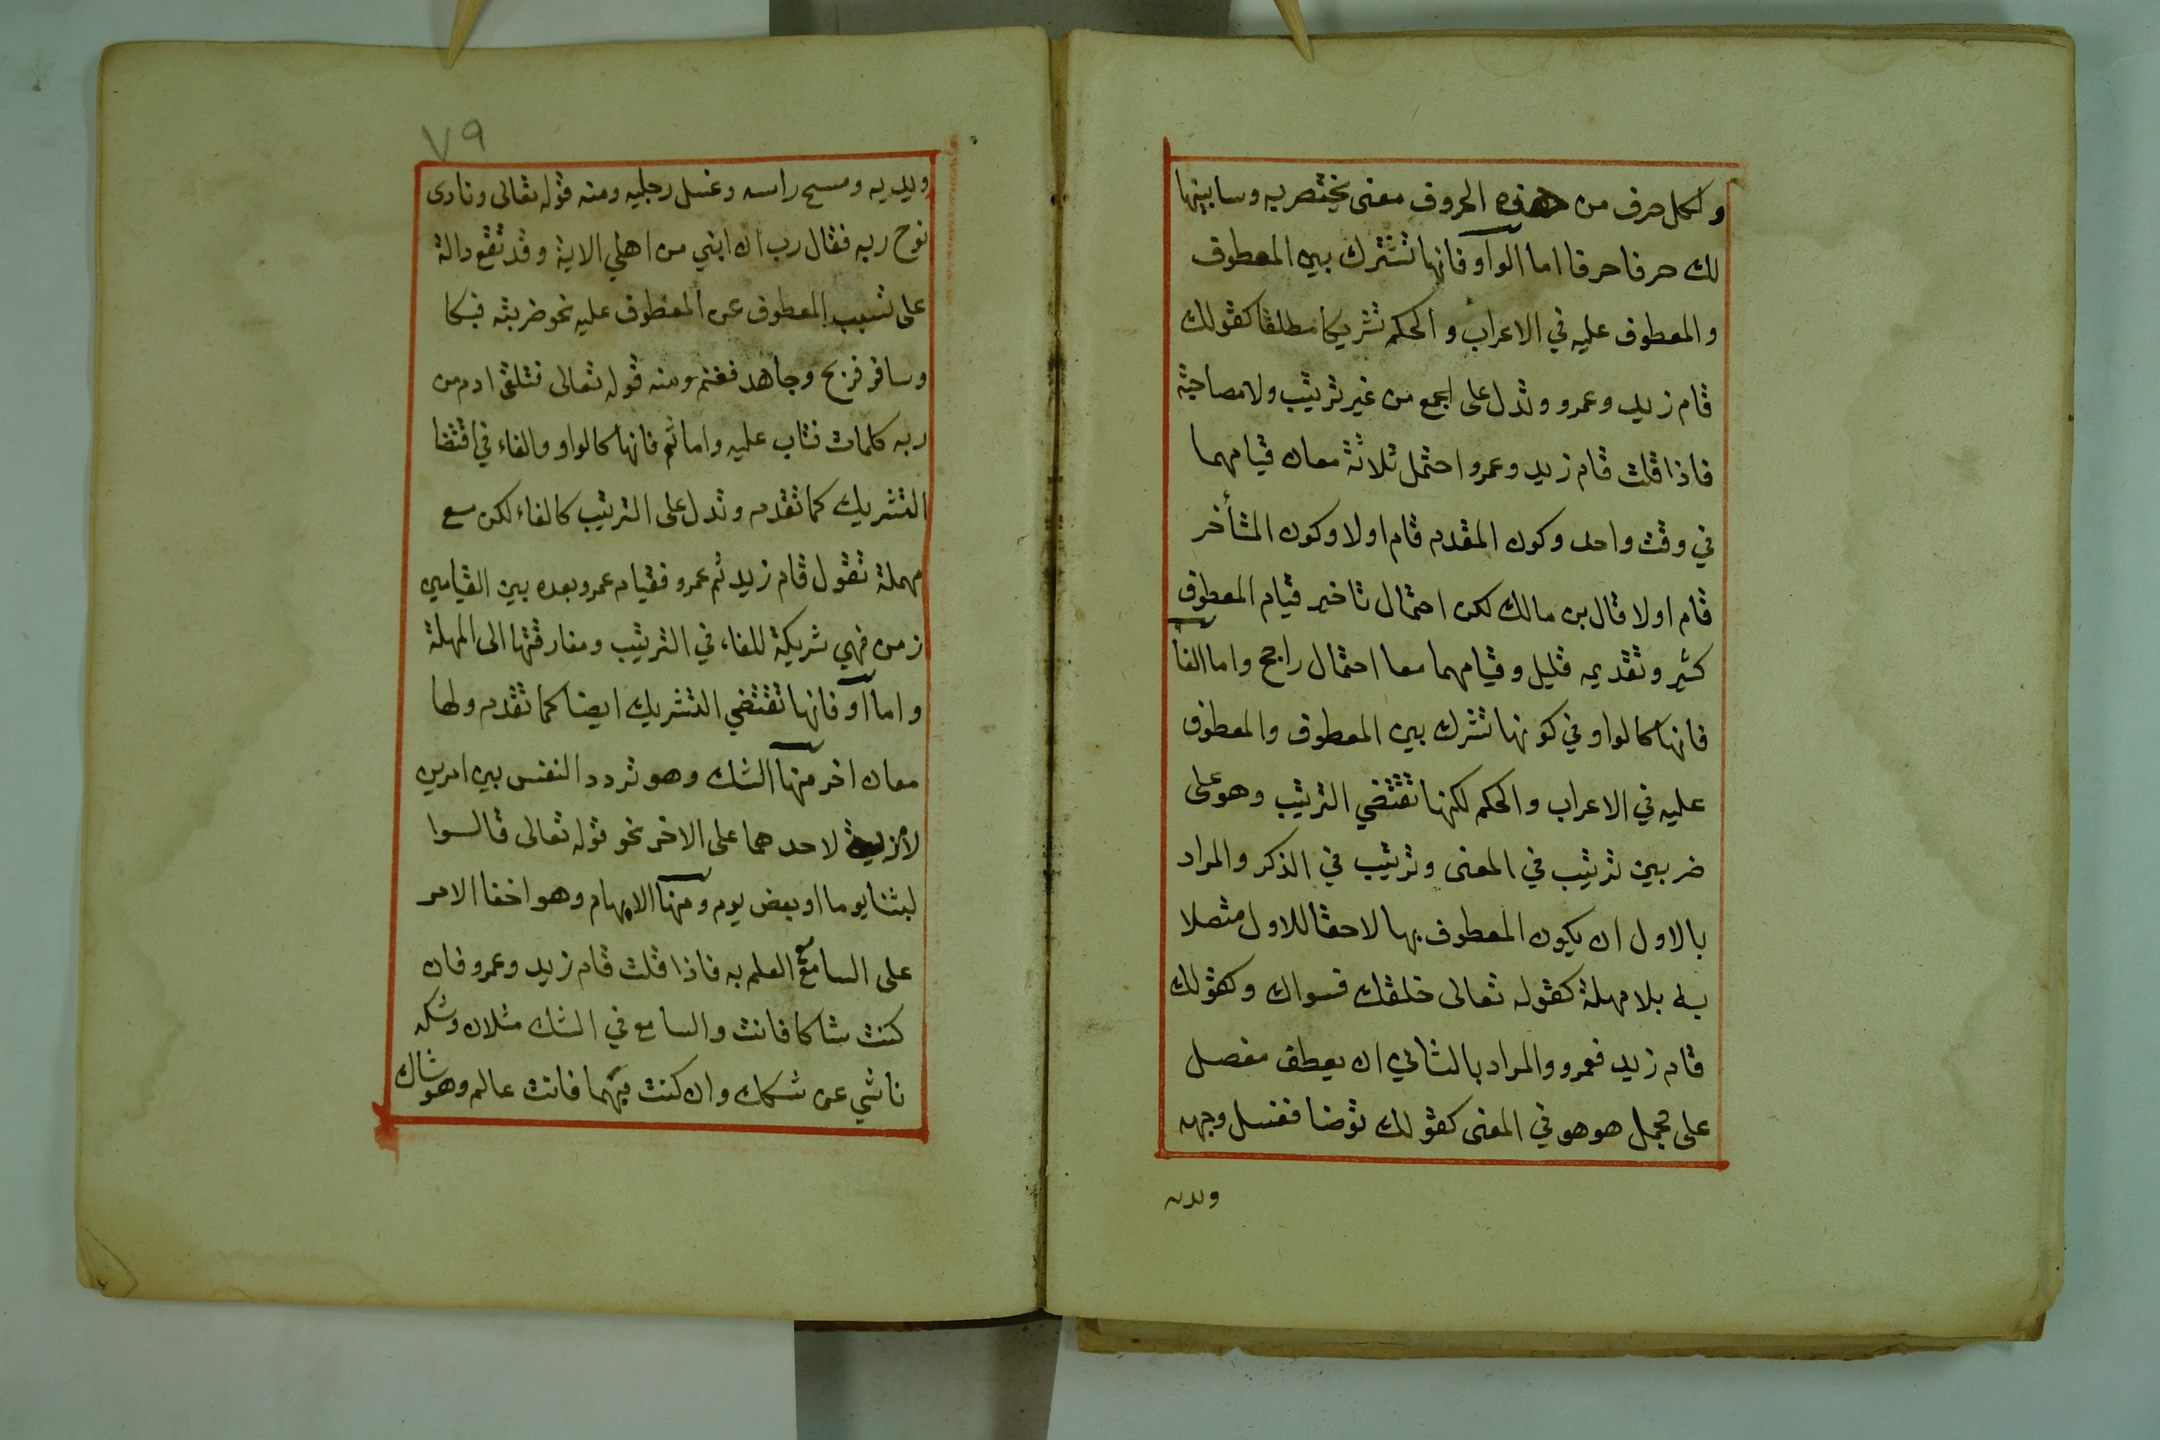 ولكل حرف من هذه الحروف معنى يختص به وسابينها
لك حرفا حرفا اما الواو فانها تشرك بين المعطوف
والمعطوف عليه في الاعراب والحكم تشريكا مطلقا كقولك
قام زيد وعمرو وتدل على الجمع من غير ترتيب ولا مصاحبة
فاذا قلت قام زيد وعمرو احتمل ثلاثة معان قيامهما
في وقت واحد وكون المقدم قام اولا وكون المتأخر
قام اولا قال بن مالك لكن احتمال تاخير قيام المعطوف
كثير وتقديمه قليل وقيامهما معا احتمال راجح واما الفا
فانها كالواو في كونها تشرك بين المعطوف والمعطوف
عليه في الاعراب والحكم لكنها تقتضي الترتيب وهو على
ضربين ترتيب في المعنى وترتيب في الذكر والمراد
بالاول ان يكون المعطوف بها لاحقا للاول متصلا
به بلا مهلة كقوله تعالى خلقك فسواك وكقولك
قام زيد فعمرو والمراد بالثاني ان يعطف مفصل
على مجمل هو هو في المعنى كقولك توضا فغسل وجهه
ويديه
٧٩
ويديه ومسح راسه وغسل رجليه ومنه قوله تعالى ونادى
نوح ربه فقال رب ان ابني من اهلي الاية وقد تقع دالة
على تسبب المعطوف عن المعطوف عليه نحو ضربته فبكا
وسافر فربح وجاهد فغنم ومنه قوله تعالى فتلقى ادم من
ربه كلمات فتاب عليه واما ثم فانها كالواو والفاء في اقتضا
التشريك كما تقدم وتدل على الترتيب كالفاء لكن مع
مهملة تقول قام زيد ثم عمرو فقيام عمرو بعده بين القيامين
زمن فهي شريكة للفاء في الترتيب ومفارقتها الى المهلة
واما او فانها تقتضي التشريك ايضا كما تقدم ولها
معان اخر منها الشك وهو تردد النفس بين امرين
لا مزية لاحدهما على الاخر نحو قوله تعالى قالوا
لبثنا يوما او بعض يوم ومنها الابهام وهو اخفا الامر
على السامع مع العلم به فاذا قلت قام زيد وعمرو فان
كنت شاكا فانت والسامع في الشك مثلان وشكه
ناشي عن شكك وان كنت مبهما فانت عالم وهو شاك